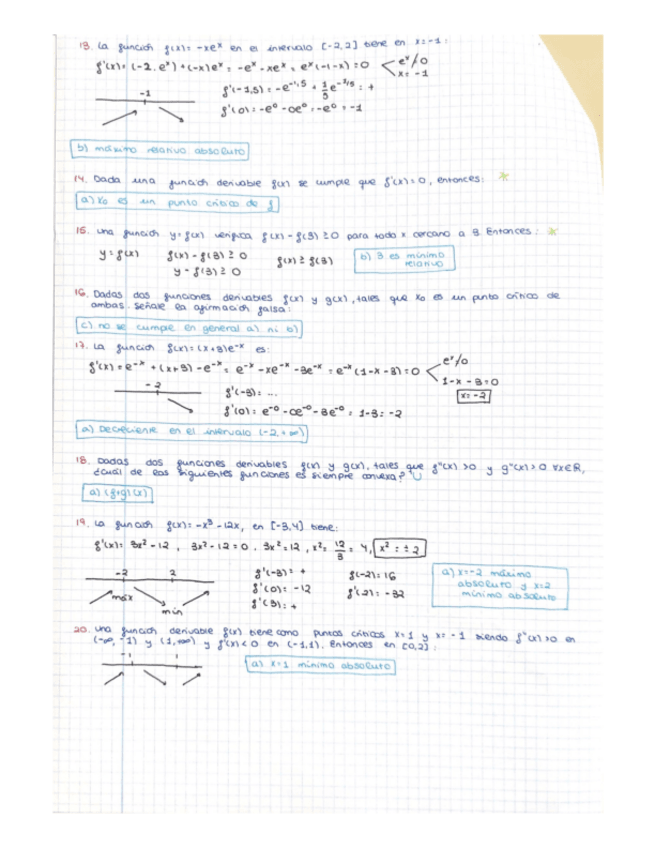 13. La función f(x) = -xeˣ en el intervalo [-2,2] tiene en x=-1:
f'(x) = (-2.eˣ) + (-x)eˣ = -eˣ - xeˣ = eˣ(-1-x) = 0 < eˣ≠0
x = -1
-1
f'(-1,5) = -e⁻¹'⁵ +
= +
f'(0) = -e⁰ - 0e⁰ = -e⁰ = -1
b) máximo relativo absoluto
14. Dada una función derivable f(x) se cumple que f'(x)=0, entonces:
a) x₀ es un punto crítico de f
15. Una función y=f(x) verifica f(x) - f(3) ≥ 0 para todo x cercano a 3. Entonces:
y = f(x) f(x) - f(3) ≥ 0 f(x) ≥ f(3) b) 3 es mínimo relativo
y - f(3) ≥ 0
16. Dadas dos funciones derivables f(x) y g(x), tales que x₀ es un punto crítico de
ambas. Señale la afirmación falsa:
c) no se cumple en general a) ni b)
17. La función f(x) = (x+3)e⁻ˣ es:
f'(x) = e⁻ˣ + (x+3) -e⁻ˣ = e⁻ˣ - xe⁻ˣ - 3e⁻ˣ = e⁻ˣ(1-x-3) = 0 < eˣ≠0
1-x-3=0
x=-2
-2
f'(-3) = ...
f'(0) = e⁻⁰ - 0e⁻⁰ - 3e⁻⁰ = 1-3 = -2
a) Decreciente en el intervalo (-2,+∞)
18. Dadas dos funciones derivables f(x) y g(x), tales que f''(x) >0 y g''(x)>0 ∀x∈R,
¿cuál de las siguientes funciones es siempre convexa? U
a) (f+g)(x)
19. La función f(x) = -x³ - 12x, en [-3,4] tiene:
f'(x) = 3x² - 12 , 3x² - 12 = 0 , 3x² = 12 , x² = 12/3 = 4, x² = ±2
-2 2
máx
mín
f'(-3) = + f(-2) = 16
f'(0) = -12 f'(2) = -32
f'(3) = +
a) x=-2 máximo
absoluto y x=2
mínimo absoluto
20. Una función derivable f(x) tiene como puntos críticos x=1 y x=-1 siendo f'(x) >0 en
(-∞,-1) y (1,+∞) y f'(x) < 0 en (-1,1). Entonces en [0,2]:
-1 1
a) x=1 mínimo absoluto